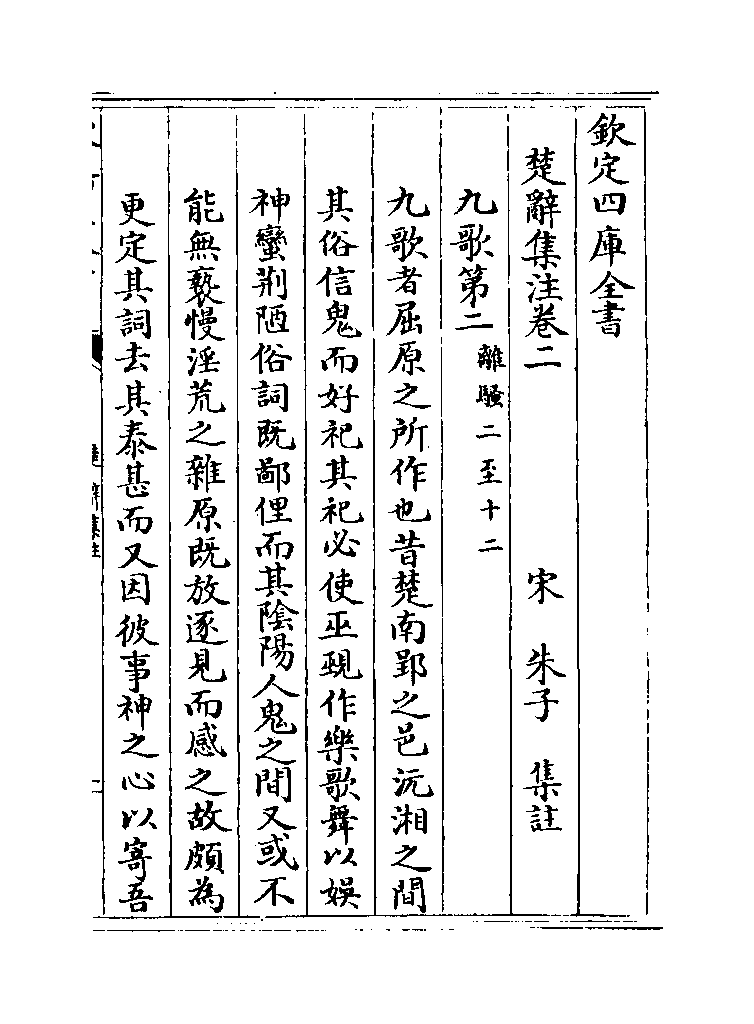 欽定四庫全書
楚辭集注卷二
宋 朱子 集註
九歌第二 離騷二至十二
九歌者屈原之所作也昔楚南郢之邑沅湘之間
其俗信鬼而好祀其祀必使巫覡作樂歌舞以娛
神蠻荆陋俗詞既鄙俚而其陰陽人鬼之間又或不
能無褻慢淫荒之雜原既放逐見而感之故頗為
更定其詞去其泰甚而又因彼事神之心以寄吾